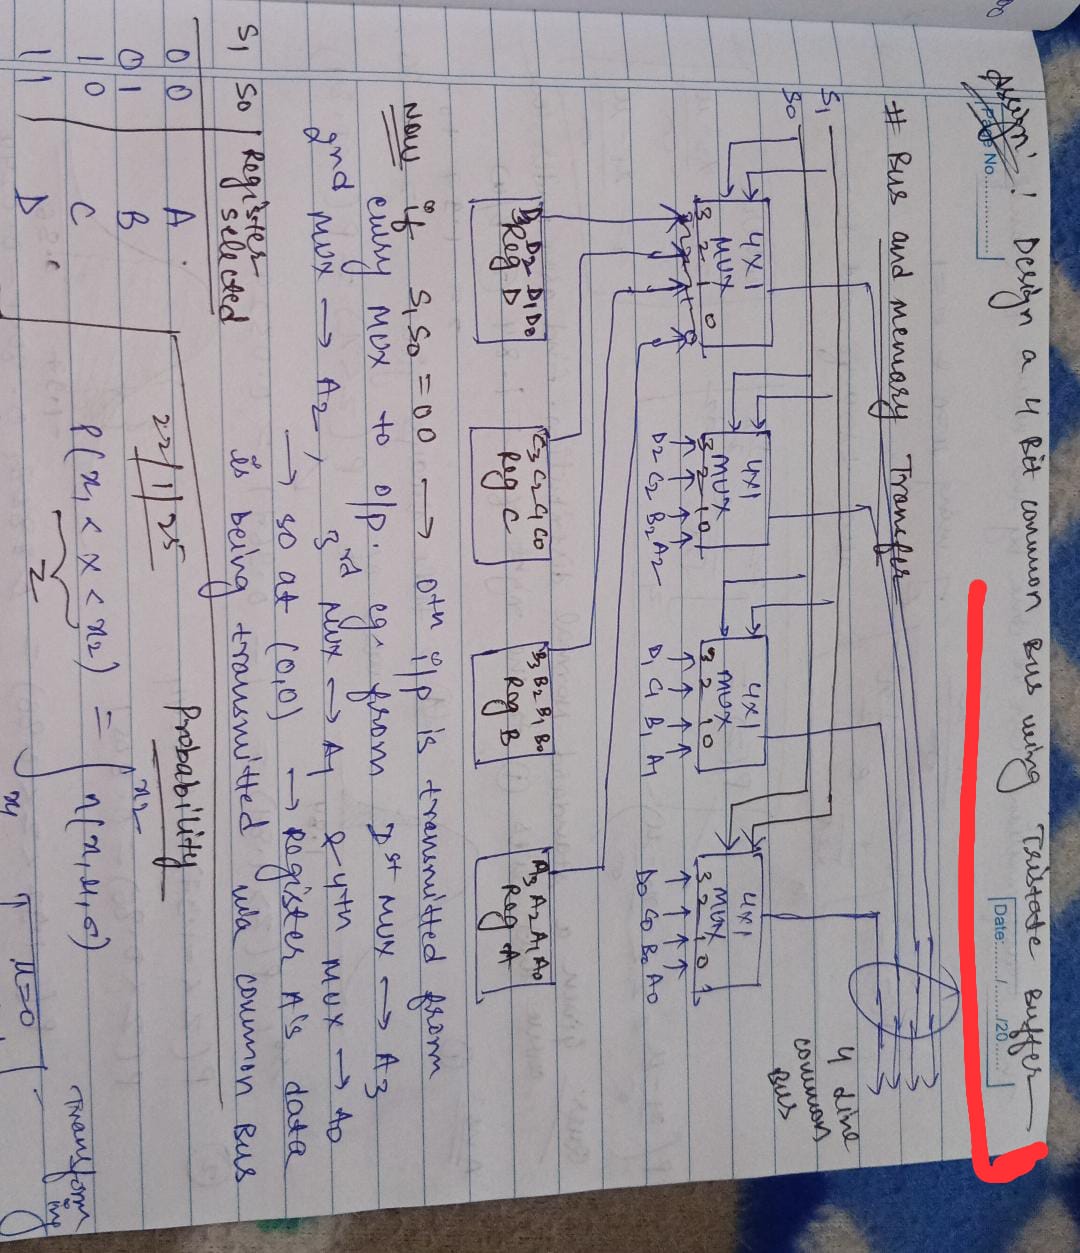 Assign: Design a 4 Bit common Bus using Tristate Buffer
Page No.
Date:....../....../20......
# Bus and memory Transfer
S1
S0
4X1
MUX
3 2 1 0
4X1
MUX
3 2 1 0
D2 C2 B2 A2
4X1
MUX
3 2 1 0
D1 C1 B1 A1
4X1
MUX
3 2 1 0
D0 C0 B0 A0
4 Line
common
Bus
D3 D2 D1 D0
Reg D
C3 C2 C1 C0
Reg C
B3 B2 B1 B0
Reg B
A3 A2 A1 A0
Reg A
Now if S1S0 = 00 → 0th i/p is transmitted from
every MUX to o/p. eg: from Ist MUX → A3
2nd MUX → A2, 3rd MUX → A1 & 4th MUX → A0
→ so at (0,0) → Register A's data
is being transmitted via common Bus
S1 S0 Register selected
0 0 A
0 1 B
1 0 C
1 1 D
22/1/25
Probability
P(x1 < x < x2) = ∫ x2 x1 n(x, μ, σ)
z
μ=0
Transform
ing